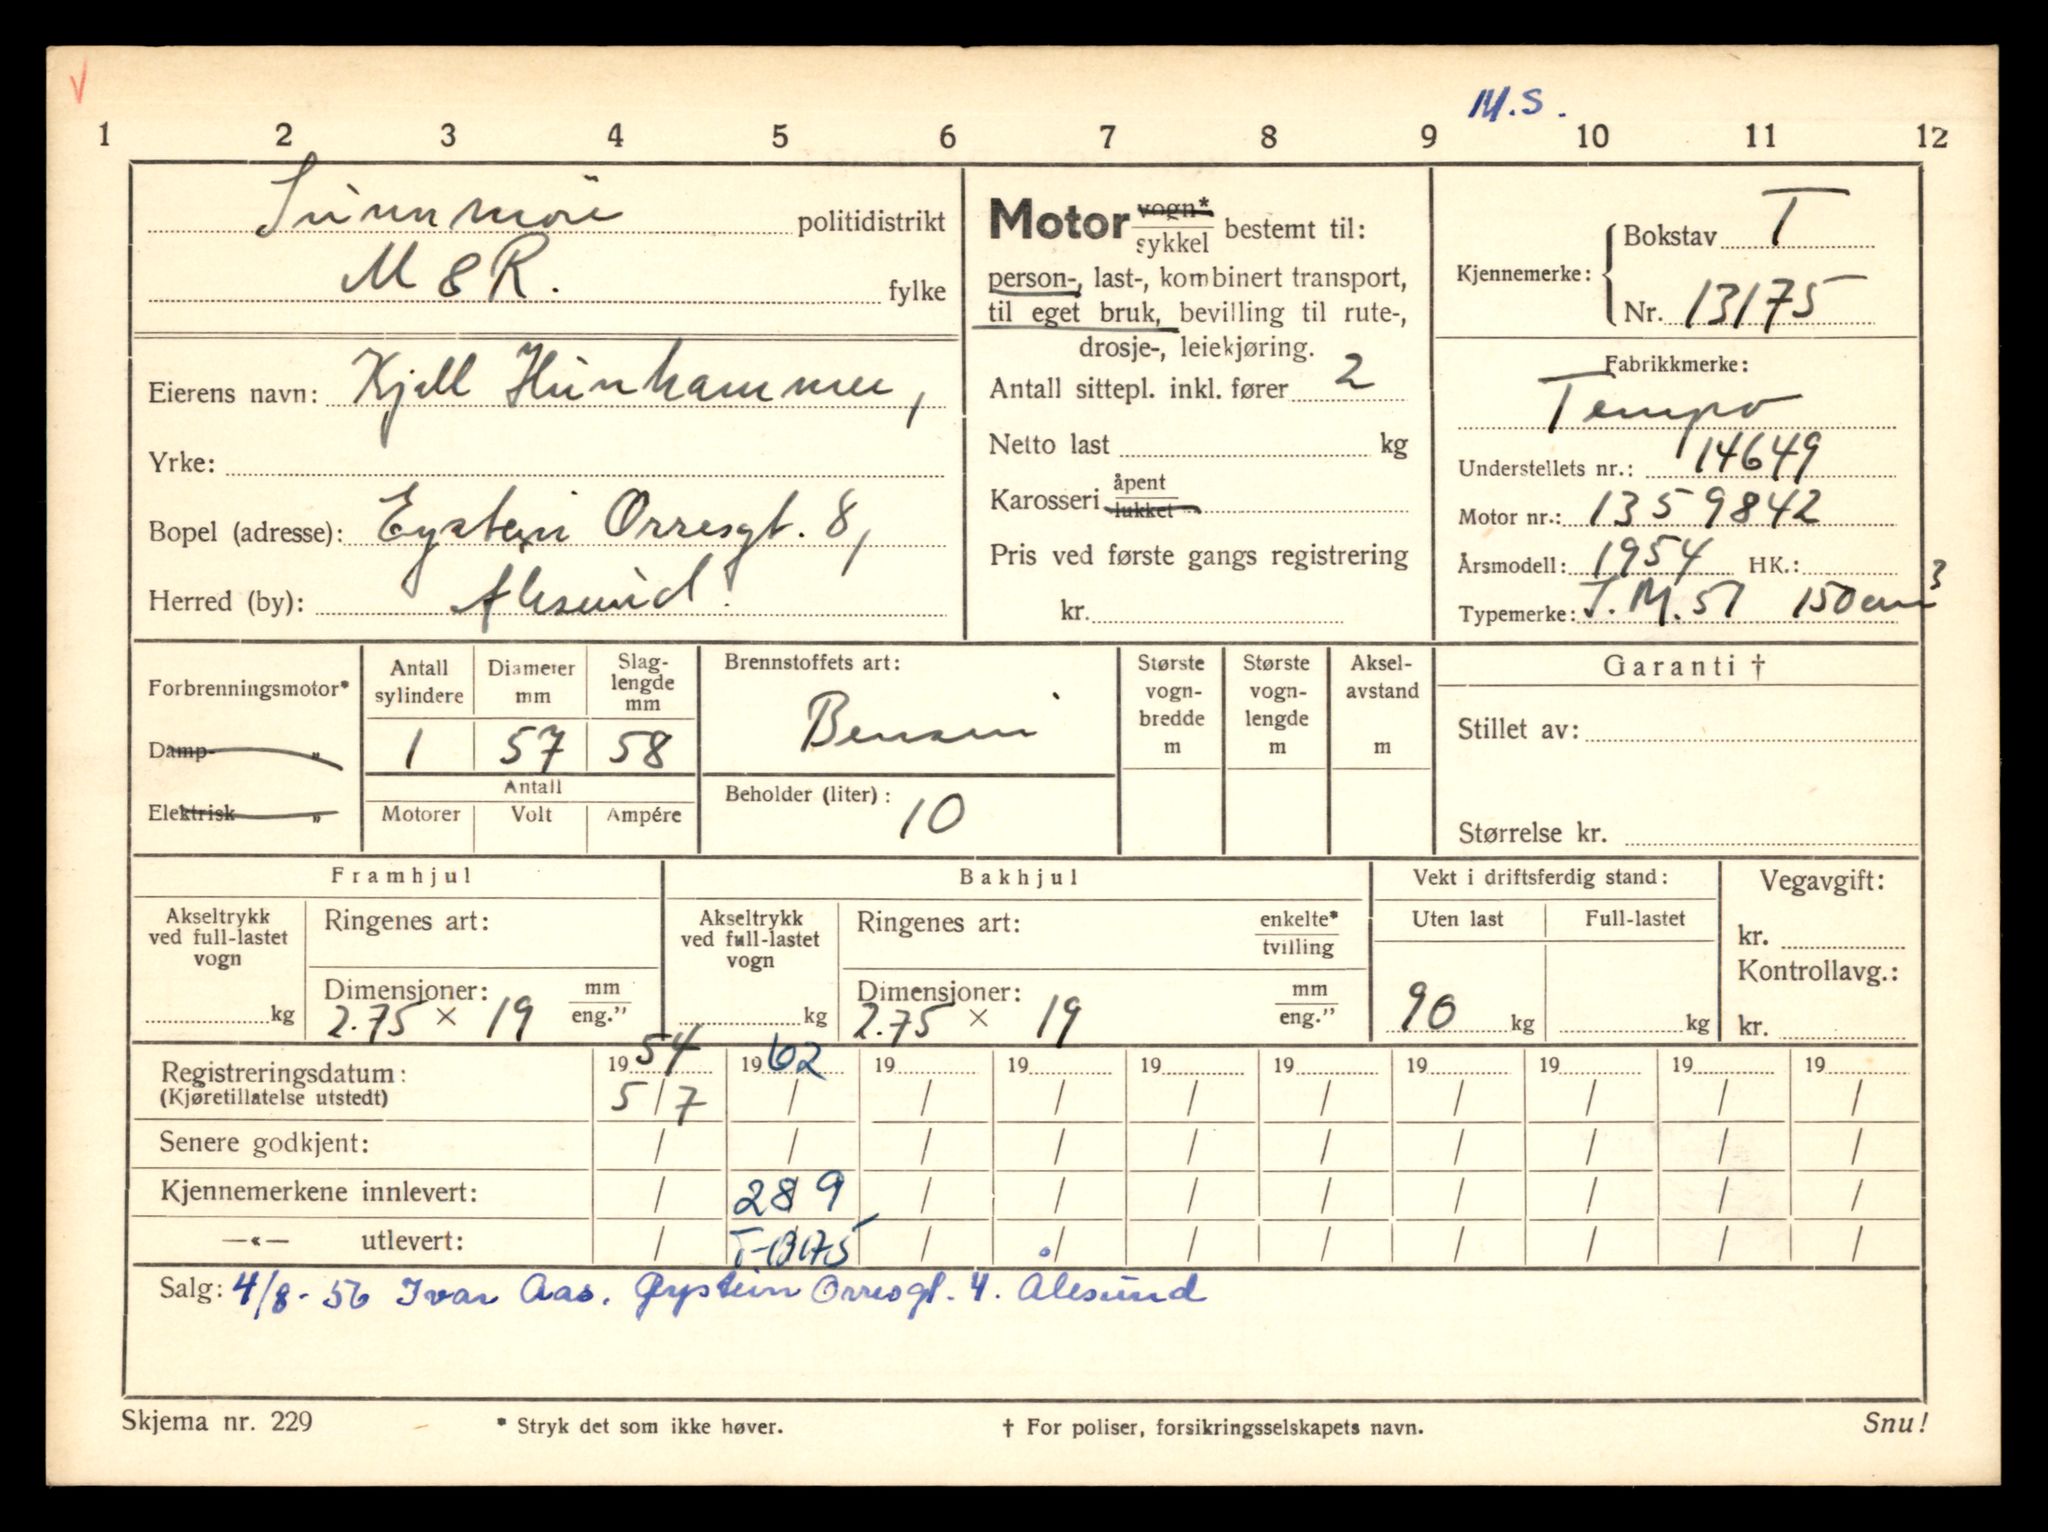 V
M.S.
1 2 3 4 5 6 7 8 9 10 11 12
Sunnmöre politidistrikt
M & R. fylke
Eierens navn: Kjell Hunhammer,
Yrke:
Bopel (adresse): Eystein Orresgt. 8,
Herred (by): Alesund.
Motor vogn* / sykkel bestemt til:
person-, last-, kombinert transport,
til eget bruk, bevilling til rute-,
drosje-, leiekjøring.
Antall sittepl. inkl. fører 2
Netto last kg
Karosseri åpent / lukket
Pris ved første gangs registrering
kr.
Kjennemerke: Bokstav T
Nr. 13175
Fabrikkmerke:
Tempo
Understellets nr.: 14649
Motor nr.: 1359842
Årsmodell: 1954 HK.:
Typemerke: S.M. 51 150 cm³
Forbrenningsmotor*
Damp- „
Elektrisk „
Antall sylindere Diameter mm Slag-lengde mm
1 57 58
Antall
Motorer Volt Ampére
Brennstoffets art:
Bensin
Beholder (liter): 10
Største vogn-bredde m
Største vogn-lengde m
Aksel-avstand m
Garanti †
Stillet av:
Størrelse kr.
Framhjul
Akseltrykk ved full-lastet vogn
kg
Ringenes art:
Dimensjoner: mm / eng."
2.75 × 19
Bakhjul
Akseltrykk ved full-lastet vogn
kg
Ringenes art: enkelte* / tvilling
Dimensjoner: mm / eng."
2.75 × 19
Vekt i driftsferdig stand:
Uten last Full-lastet
90 kg kg
Vegavgift:
kr.
Kontrollavg.:
kr.
Registreringsdatum: 1954 1962 19 19 19 19 19 19 19 19
(Kjøretillatelse utstedt) 5/7 / / / / / / / / /
Senere godkjent: / / / / / / / / / /
Kjennemerkene innlevert: / 28/9 / / / / / / / /
—«— utlevert: / T-13175 / / / / / / / /
Salg: 4/8-56 Ivar Aas. Øystein Orresgt. 4. Ålesund
Skjema nr. 229 * Stryk det som ikke høver. † For poliser, forsikringsselskapets navn. Snu!